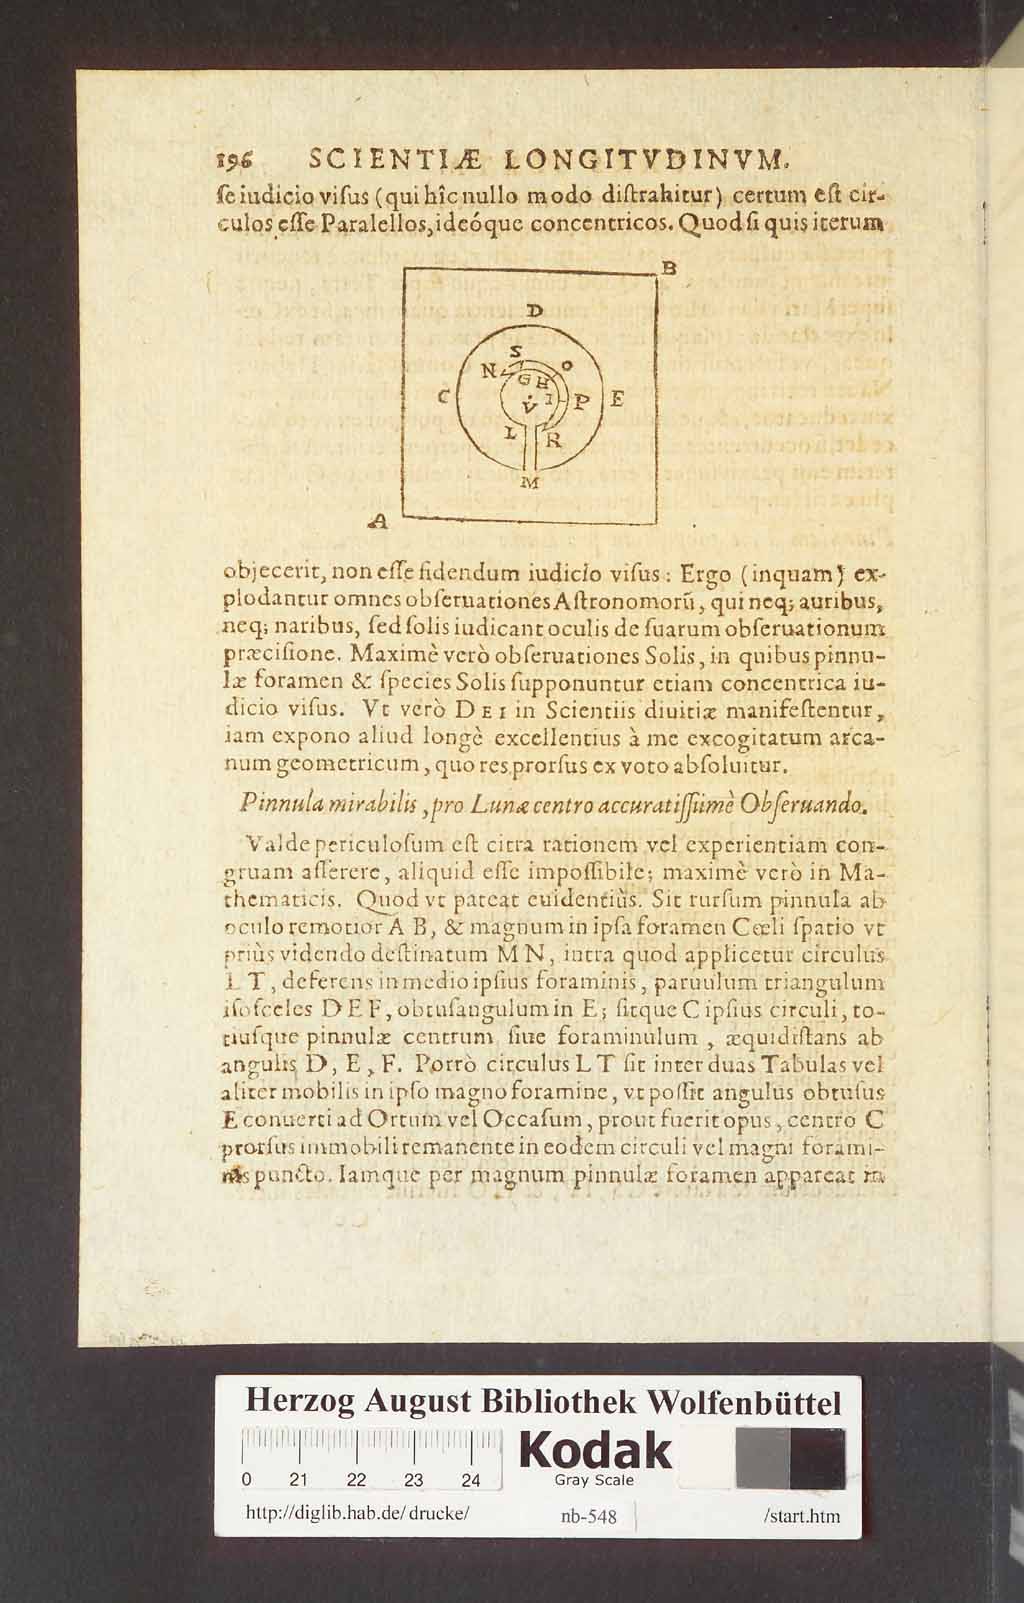 196 SCIENTIÆ LONGITVDINVM.
ſe iudicio viſus (qui hîc nullo modo diſtrahitur) certum eſt cir-
culos eſſe Paralellos, ideóque concentricos. Quod ſi quis iterum
B
D
S
N
O
G
H
C
V
I
P
E
L
R
M
A
objecerit, non eſſe fidendum iudicio viſus: Ergo (inquam) ex-
plodantur omnes obſeruationes Aſtronomorũ, qui neq; auribus,
neq; naribus, ſed ſolis iudicant oculis de ſuarum obſeruationum
præciſione. Maximè verò obſeruationes Solis, in quibus pinnu-
læ foramen & ſpecies Solis ſupponuntur etiam concentrica iu-
dicio viſus. Vt verò DEI in Scientiis diuitiæ manifeſtentur,
iam expono aliud longè excellentius à me excogitatum arca-
num geometricum, quo res prorſus ex voto abſoluitur.
Pinnula mirabilis, pro Lunæ centro accuratiſſimè Obſeruando.
Valde periculoſum eſt citra rationem vel experientiam con-
gruam aſſerere, aliquid eſſe impoſſibile; maximè verò in Ma-
thematicis. Quod vt pateat euidentiùs. Sit rurſum pinnula ab
oculo remotior A B, & magnum in ipſa foramen Cœli ſpatio vt
priùs videndo deſtinatum M N, intra quod applicetur circulus
L T, deferens in medio ipſius foraminis, paruulum triangulum
iſoſceles D E F, obtuſangulum in E; ſitque C ipſius circuli, to-
tiuſque pinnulæ centrum ſiue foraminulum, æquidiſtans ab
angulis D, E, F. Porrò circulus L T ſit inter duas Tabulas vel
aliter mobilis in ipſo magno foramine, vt poſſit angulus obtuſus
E conuerti ad Ortum vel Occaſum, prout fuerit opus, centro C
prorſus immobili remanente in eodem circuli vel magni forami-
nis puncto. Iamque per magnum pinnulæ foramen appareat in
Herzog August Bibliothek Wolfenbüttel
0 21 22 23 24
Kodak
Gray Scale
http://diglib.hab.de/drucke/ nb-548 /start.htm